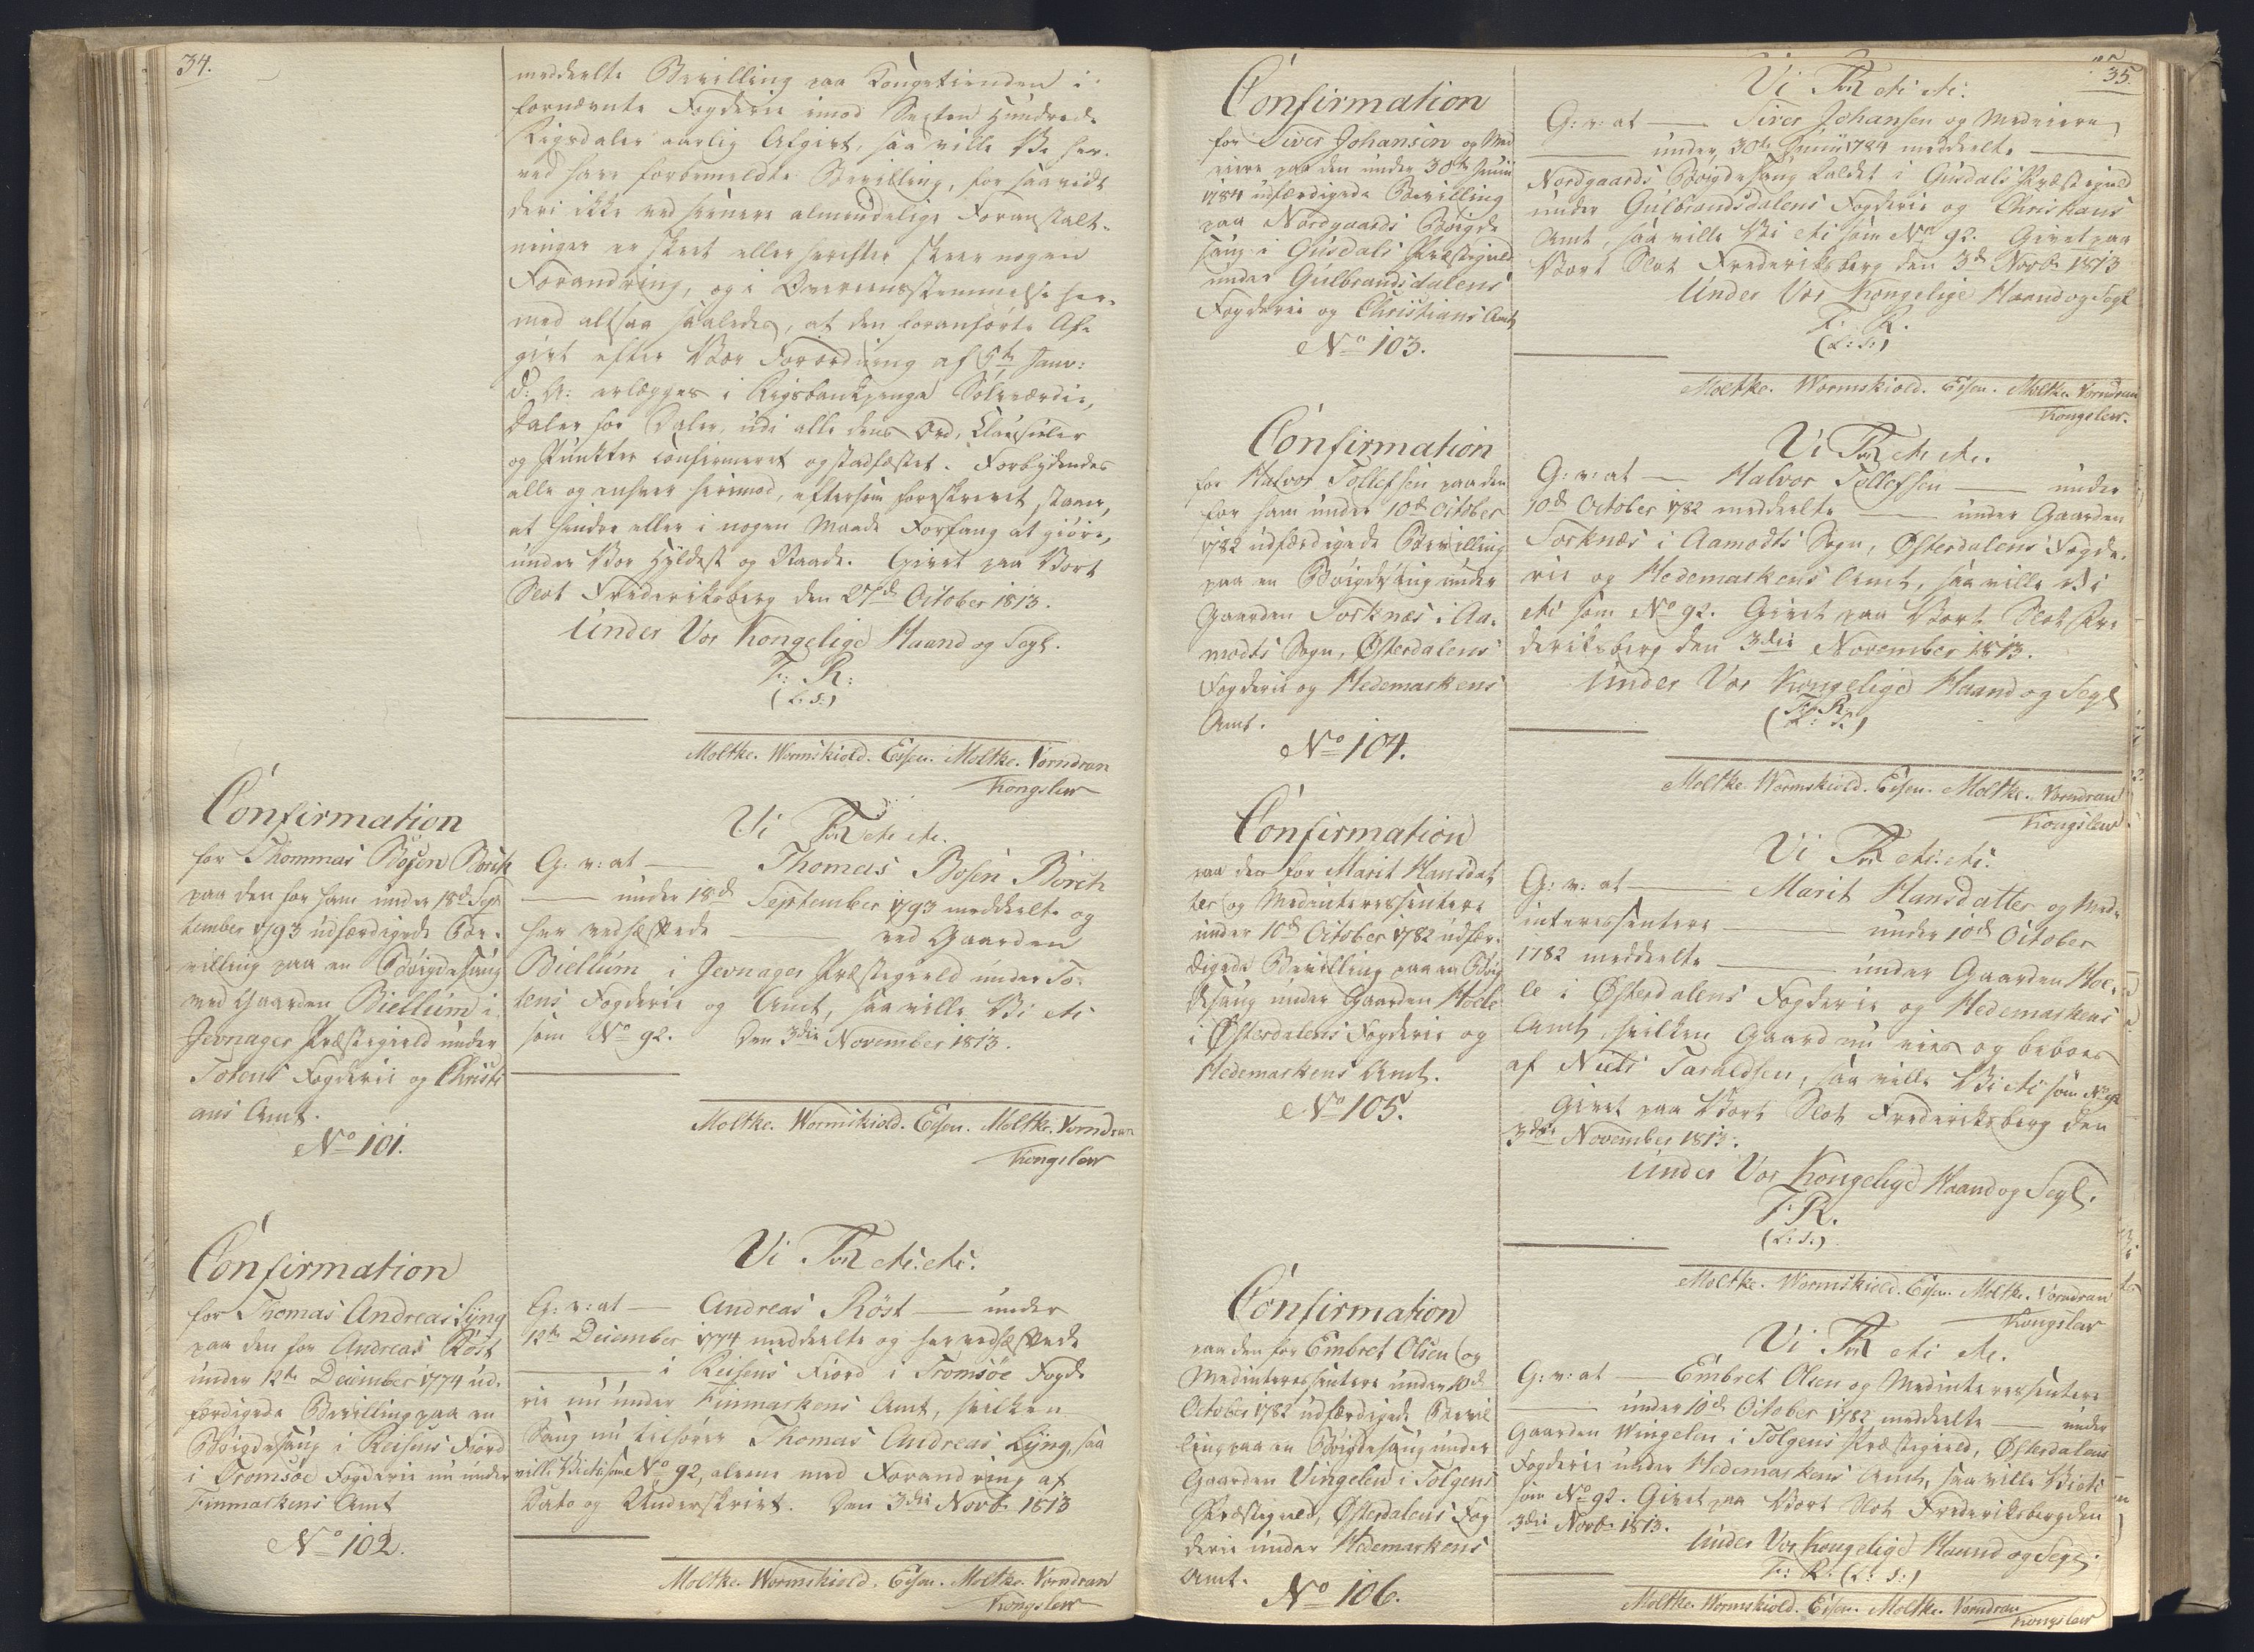 34.
meddeelte Bevilling paa Kongetienden i
fornævnte Fogderie imod Sexten Hundrede
Rigsdaler aarlig Afgivt, saa ville Vi her-
ved have forbemeldte Bevilling, for saavidt
deri ikke ved senere almindelige Foranstalt-
ninger er skeet eller herefter skeer nogen
Forandring, og i Overeensstemmelse her-
med altsaa saaledes, at den foranførte Af-
givt efter Vor Forordning af 5te Janv:
d: A: erlægges i Rigsbankpenge Sølvværdie,
Daler for Daler, udi alle dens Ord, Clausuler
og Punkter confirmeret og stadfæstet. Forbydendes
alle og enhver herimod, eftersom foreskrevet staaer,
at hindre eller i nogen Maade Forfang at giøre,
under Vor Hyldest og Naade. Givet paa Vort
Slot Frederiksberg den 27de October 1813.
Under Vor Kongelige Haand og Segl.
F: R:
(L: S:)
Moltke. Wormskiold. Essen. Moltke. Vorndran
Kongslew
Confirmation
for Thommas Bosen Borch
paa den for ham under 18de Sep
tember 1793 udfærdigede Be-
villing paa en Bøigdesaug
ved Gaarden Biellum i
Jevnager Præstegield under
Totens Fogderie og Christi
ans Amt.
No 101.
Vi FR etc etc.
G: v: at — Thomas Bosen Borch
— under 18de September 1793 meddeelte og
her vedhæftede — ved Gaarden
Biellum i Jevnager Præstegield under To-
tens Fogderie og Amt, saa ville Vi etc
som No 92. Den 3die November 1813.
Moltke. Wormskiold. Essen. Moltke. Vorndran
Kongslew
Confirmation
for Thomas Andreas Lyng
paa den for Andreas Röst
under 12te December 1774 ud-
færdigede Bevilling paa en
Bøigdesaug i Reisens Fiord
i Tromsöe Fogderie nu under
Finmarkens Amt
No 102.
Vi FR etc. etc.
G: v: at — Andreas Röst — under
12te December 1774 meddeelte og her vedhæftede
— i Reisens Fiord i Tromsöe Fogde
rie nu under Finmarkens Amt, hvilken
Saug nu tilhører Thomas Andreas Lyng, saa
ville Vi etc som No 92, alene med Forandring af
Dato og Underskrivt. Den 3die Novb. 1813
Moltke. Wormskiold. Essen. Moltke. Vorndran
Kongslew
35.
Confirmation
for Siver Johansen og Med
eiere paa den under 30te Junii
1784 udfærdigede Bevilling
paa Nordgaards Bøigde
saug i Gusdals Præstegield
under Gulbrandsdalens
Fogderie og Christians Amt
No 103.
Vi FR etc etc.
G: v: at — Siver Johansen og Medeiere
— under 30te Junii 1784 meddeelte —
Nordgaards Bøigdesaug kaldet i Gusdals Præstegield
under Gulbrandsdalens Fogderie og Christians
Amt, saa ville Vi etc som No 92. Givet paa
Vort Slot Frederiksberg den 3de Novb. 1813
Under Vor Kongelige Haand og Segl
F. R.
(L: S:)
Moltke. Wormskiold. Essen. Moltke. Vorndran
Kongslew.
Confirmation
for Halvor Tollefsen paa den
for ham under 10de October
1782 udfærdigede Bevilling
paa en Bøigdesaug under
Gaarden Torknæs i Aa-
modts Sogn, Østerdalens
Fogderie og Hedemarkens
Amt.
No 104.
Vi FR etc etc.
G: v: at — Halvor Tollefsen — under
10de October 1782 meddeelte — under Gaarden
Torknæs i Aamodts Sogn, Østerdalens Fogde-
rie og Hedemarkens Amt, saa ville Vi
etc som No 92. Givet paa Vort Slot Fre
deriksberg den 3die November 1813.
Under Vor Kongelige Haand og Segl
F. R.
(L: S:)
Moltke. Wormskiold. Essen. Moltke. Vorndran
Kongslew.
Confirmation
paa den for Marit Hansdat
ter og Medinteressentere
under 10de October 1782 udfær-
digede Bevilling paa en Bøig
desaug under Gaarden Hoele
i Østerdalens Fogderie og
Hedemarkens Amt.
No 105.
Vi FR etc. etc.
G: v: at — Marit Hansdatter og Med-
interessentere — under 10de October
1782 meddeelte — under Gaarden Hoe-
le i Østerdalens Fogderie og Hedemarkens
Amt, hvilken Gaard nu eies og beboes
af Niels Taraldsen, saa ville Vi etc som No 92
Givet paa Vort Slot Frederiksberg den
3die November 1813.
Under Vor Kongelige Haand og Segl.
F. R.
(L: S:)
Moltke. Wormskiold. Essen. Moltke. Vorndran
Kongslew
Confirmation
paa den for Embret Olsen og
Medinteressentere under 10de
October 1782 udfærdigede Bevil
ling paa en Bøigdesaug under
Gaarden Vingelen i Tolgens
Præstegield, Østerdalens Fog
derie under Hedemarkens
Amt.
No 106.
Vi FR etc etc.
G: v: at — Embret Olsen og Medinteressentere
— under 10de October 1782 meddeelte — under
Gaarden Wingelen i Tolgens Præstegield, Østerdalens
Fogderie under Hedemarkens Amt, saa ville Vi etc
som No 92. Givet paa Vort Slot Frederiksberg den
3die Novb. 1813.
Under Vor Kongelige Haand og Segl.
F: R: (L: S:)
Moltke. Wormskiold. Essen. Moltke. Vorndran
Kongslew